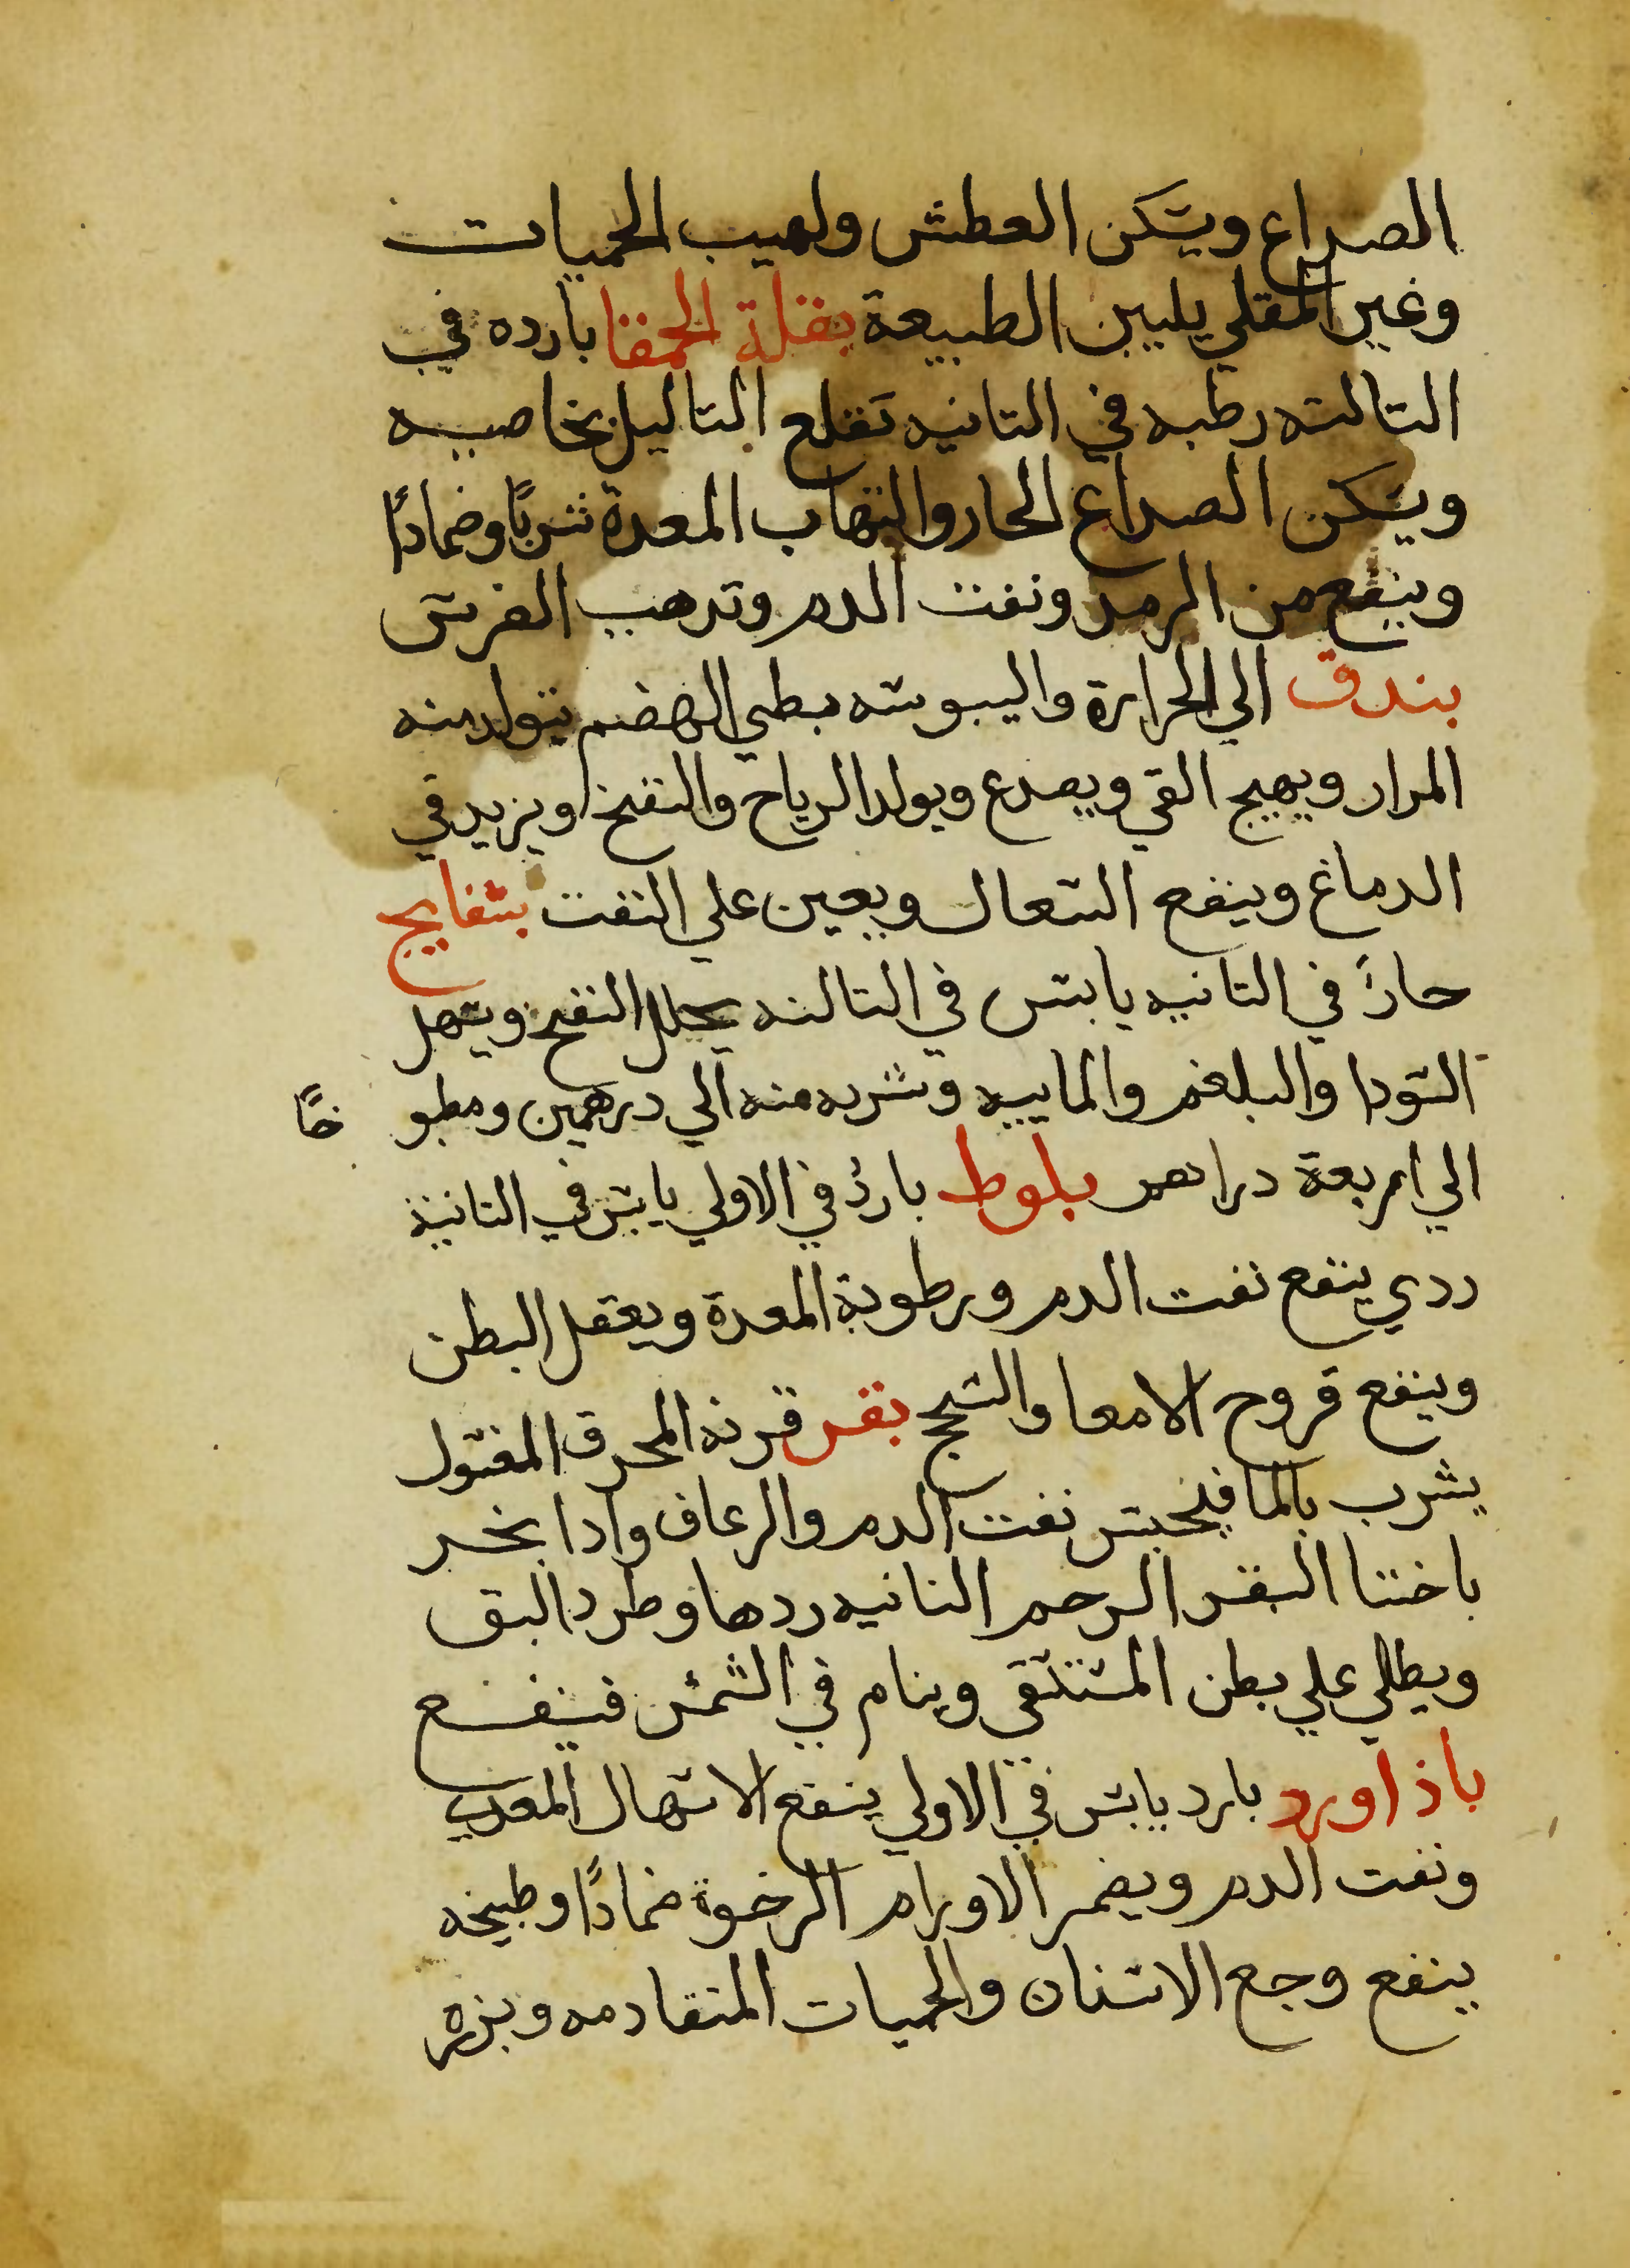 الصداع ويسكن العطش ولهيب الحميات
وغير المقلي يليين الطبيعة بقلة الحمقا بارده في
التالته رطبه في التانيه تقلع التاليل بخاصيه
ويسكن الصداع الحار والتهاب المعدة شربًا وضمادًا
وينفع من الرمد ونفت الدم وتدهب الضرس
بندق الي الحرارة واليبوسه بطي الهضم يتولد منه
المرار ويهيج القي ويصدع ويولد الرياح والنفخ ويزيد في
الدماغ وينفع السعال ويعين علي النفت بسفايج
حارً في التانيه يابس في التالته يحلل النفخ ويسهل
السودا والبلغم والماييه وشربه منه الي درهمين ومطبو خًا
الي اربعة دراهم بلوط باردُ في الاولي يابس في التانية
ردي ينفع نفت الدم ورطوبة المعدة ويعقل البطن
وينفع قروح الامعا والسحج بقر قرنه المحرق المغسول
يشرب بالما فيحبس نفت الدم والرعاف وادا بخر
باختا البقر الرحم الناتيه ردها وطرد البق
ويطلي علي بطن المستسقي وينام في الشمس فينفع
باذاورد بارد يابس في الاولي ينفع الاسهال المعدي
ونفت الدم ويضمر الاورام الرخوة ضمادًا وطبيخه
ينفع وجع الاسنان والحميات المتقادمه وبزره